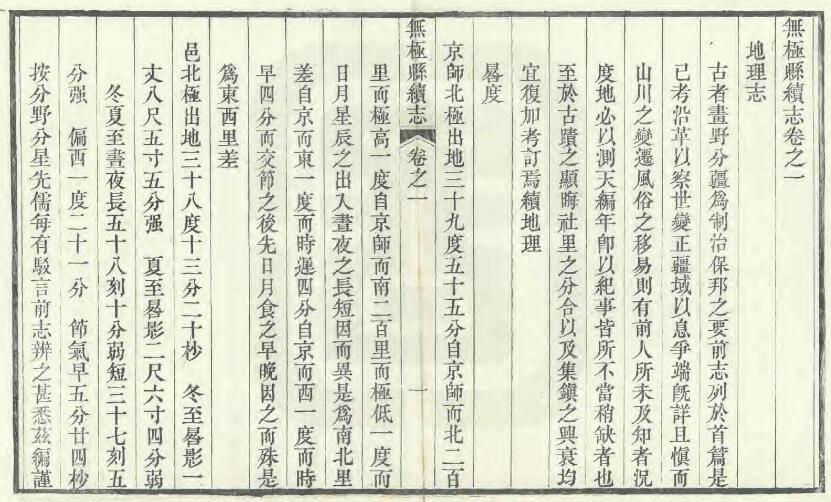 無極縣續志卷之一
地理志
古者畫野分疆爲制治保邦之要前志列於首篇是
已考沿革以察世變正疆域以息爭端旣詳且愼而
山川之變遷風俗之移易則有前人所未及知者況
度地必以測天編年卽以紀事皆所不當稍缺者也
至於古蹟之顯晦社里之分合以及集鎭之興衰均
宜復加考訂焉續地理
晷度
京師北極出地三十九度五十五分自京師而北二百
無極縣續志 卷之一 一
里而極高一度自京師而南二百里而極低一度而
日月星辰之出入晝夜之長短因而異是爲南北里
差自京而東一度而時遲四分自京而西一度而時
早四分而交節之後先日月食之早晚因之而殊是
爲東西里差
邑北極出地三十八度十三分二十杪 冬至晷影一
丈八尺五寸五分强 夏至晷影二尺六寸四分弱
冬夏至晝夜長五十八刻十分弱短三十七刻五
分强 偏西一度二十一分 節氣早五分廿四杪
按分野分星先儒每有駁言前志辨之甚悉茲編謹